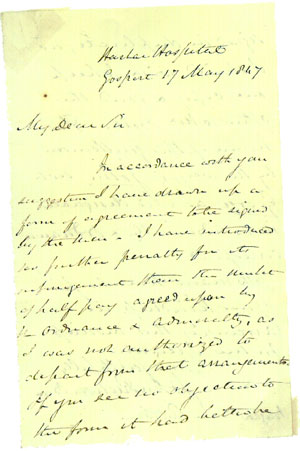 Haslar Hospital
Gosport 17 May 1847
My Dear Sir
In accordance with your
suggestion I have drawn up a
form of agreement to be signed
by the men - I have introduced
no further penalty for its
infringement than the
of half pay agreed upon by
Ordnance & Admiralty, as
I was not authorized to
depart from that arrangement.
If you see no objection to
the form it had better be